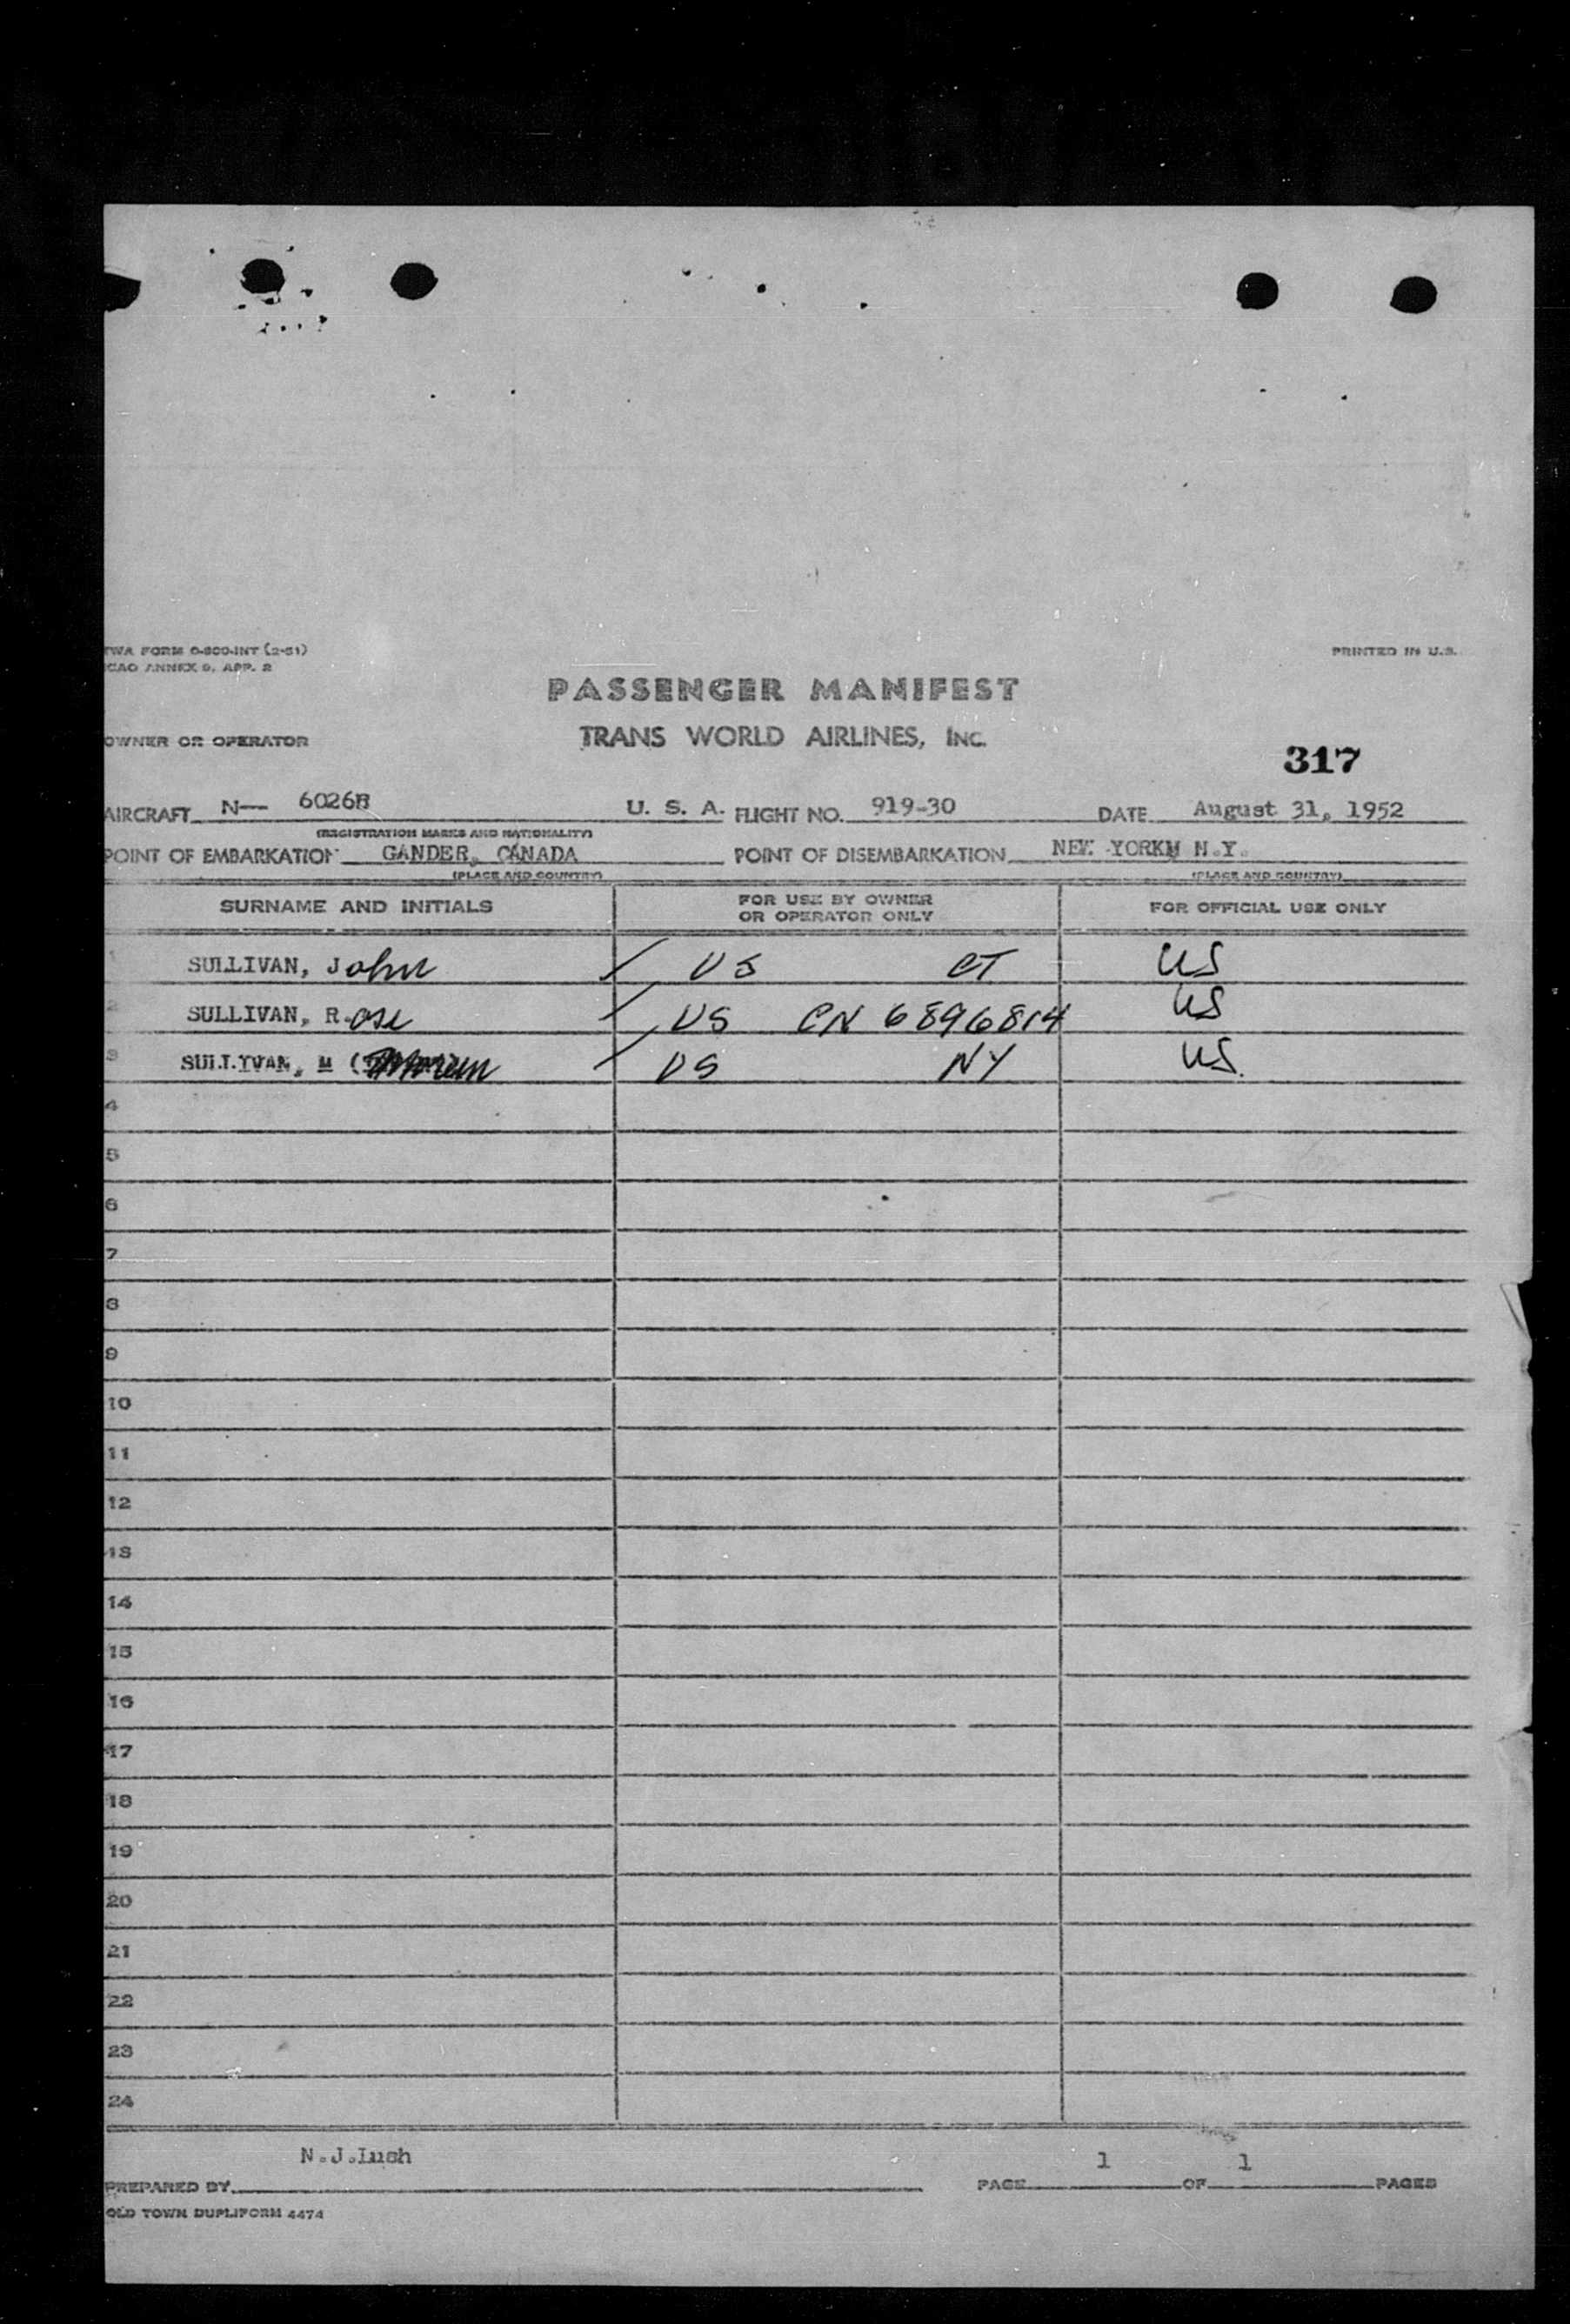 TWA FORM O-800-INT (2-51)
ICAO ANNEX 9, APP. 2
PRINTED IN U.S.
PASSENGER MANIFEST
OWNER OR OPERATOR TRANS WORLD AIRLINES, INC.
317
AIRCRAFT N— 6026B U. S. A. FLIGHT NO. 919-30 DATE August 31, 1952
(REGISTRATION MARKS AND NATIONALITY)
POINT OF EMBARKATION GANDER, CANADA POINT OF DISEMBARKATION NEW YORKM N.Y.
(PLACE AND COUNTRY) (PLACE AND COUNTRY)
SURNAME AND INITIALS FOR USE BY OWNER OR OPERATOR ONLY FOR OFFICIAL USE ONLY
1 SULLIVAN, John / US CT US
2 SULLIVAN, R.ose / US CN 6896814 US
3 SULLIVAN, M / US NY US.
4
5
6
7
8
9
10
11
12
13
14
15
16
17
18
19
20
21
22
23
24
N.J.Lush 1 1
PREPARED BY PAGE OF PAGES
OLD TOWN DUPLIFORM 4474